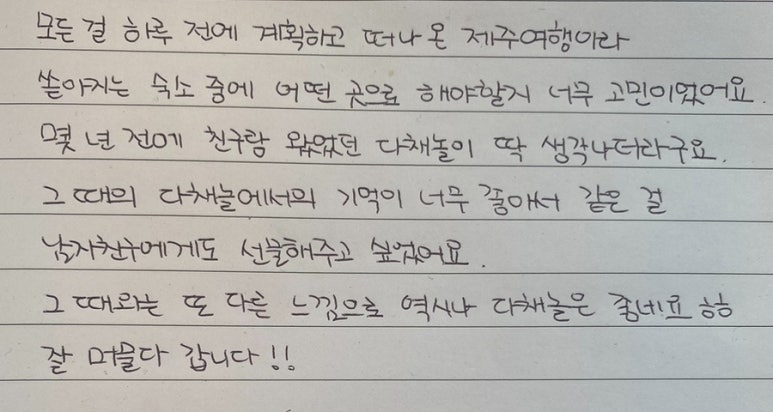 모든 걸 하루 전에 계획하고 떠나 온 제주여행이라
쏟아지는 숙소 중에 어떤 곳으로 해야할지 너무 고민이었어요.
몇 년 전에 친구랑 왔었던 다채놀이 딱 생각나더라구요.
그 때의 다채놀에서의 기억이 너무 좋아서 같은 걸
남자친구에게도 선물해주고 싶었어요.
그 때와는 또 다른 느낌으로 역시나 다채놀은 좋네요 ㅎㅎ
잘 머물다 갑니다!!